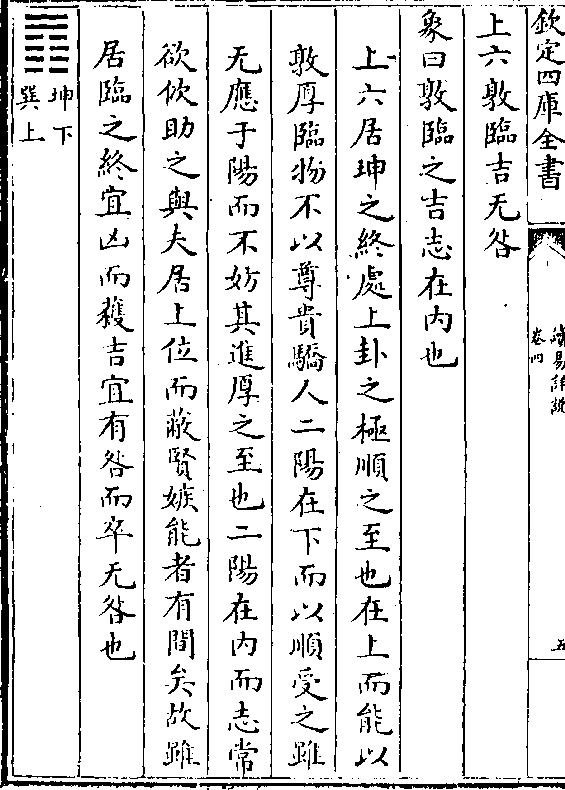 欽定四庫全書
讀易詳說
卷四
五
上六敦臨吉无咎
象曰敦臨之吉志在内也
上六居坤之終處上卦之極順之至也在上而能以
敦厚臨物不以尊貴驕人二陽在下而以順受之雖
无應于陽而不妨其進厚之至也二陽在内而志常
欲攸助之與夫居上位而蔽賢嫉能者有間矣故雖
居臨之終宜凶而獲吉宜有咎而卒无咎也
坤下
巽上